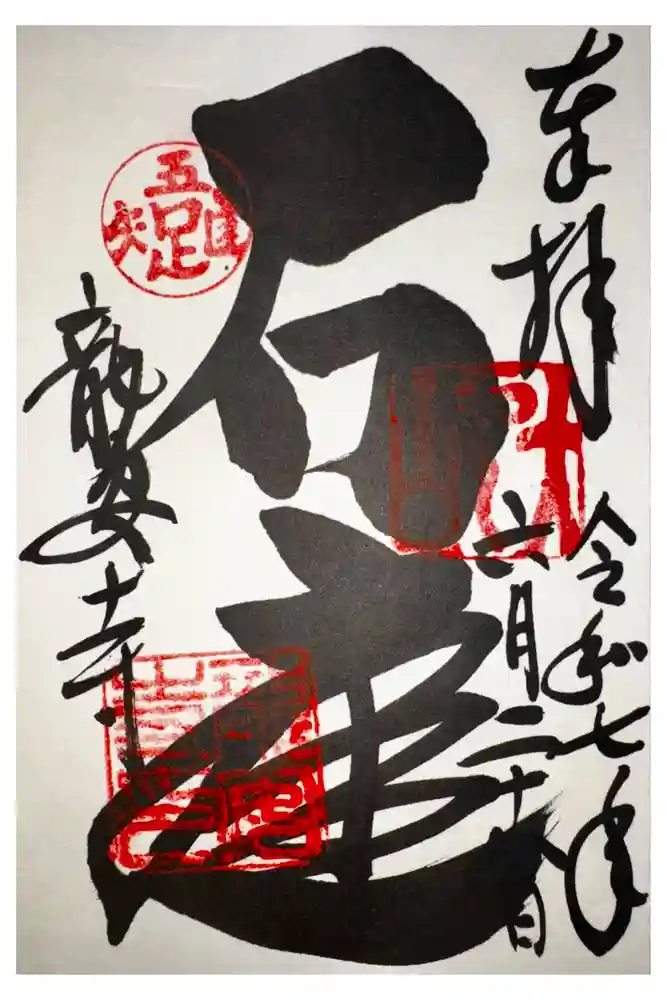 奉拝
令和七年
六月二十八日
石庭
吾唯足知
龍安寺